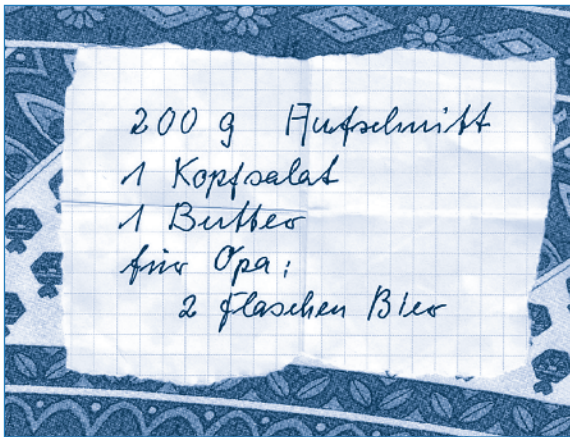 200 g Aufschnitt
1 Kopfsalat
1 Butter
für Opa:
2 Flaschen Bier